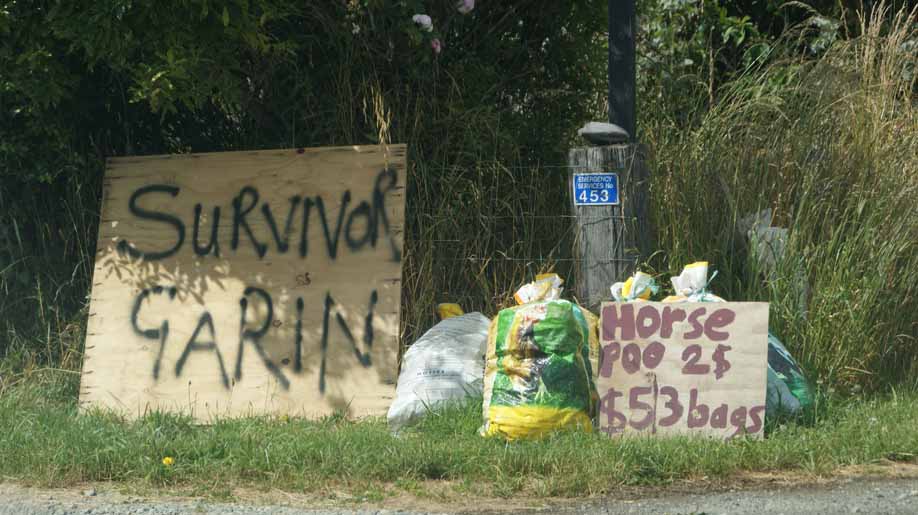 SURVIVOR
GARIN
EMERGENCY
SERVICES No
453
Horse
POO 2$
$5 3 bags